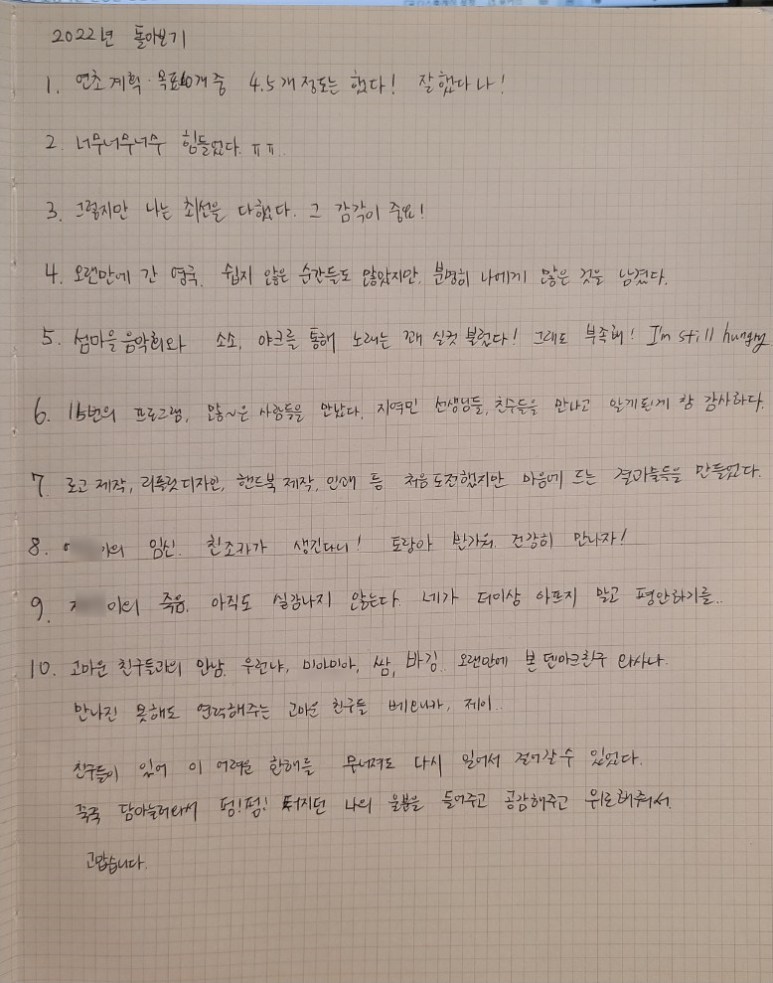 2022년 돌아보기
1. 연초계획·목표10개 중 4.5개 정도는 했다! 잘했다 나!
2. 너무너무너무 힘들었다. ㅠㅠ..
3. 그렇지만 나는 최선을 다했다. 그 감각이 중요!
4. 오랜만에 간 영국. 쉽지 않은 순간들도 많았지만, 분명히 나에게 많은 것을 남겼다.
5. 섬마을음악회와 소소, 야크를 통해 노래는 꽤 실컷 불렀다! 그래도 부족해! I'm still hungry
6. 15번의 프로그램, 많~은 사람들을 만났다. 지역민 선생님들, 친구들을 만나고 알게된게 참 감사하다.
7. 로고 제작, 리플렛디자인, 핸드북 제작, 인쇄 등 처음 도전했지만 마음에 드는 결과물들을 만들었다.
8. 이의 임신. 친조카가 생긴다니! 토랑아 반가워. 건강히 만나자!
9. 이의 죽음. 아직도 실감나지 않는다. 네가 더이상 아프지 말고 평안하기를..
10. 고마운 친구들과의 만남. 우런냐, 미야미아, 쌈, 바깅.. 오랜만에 본 덴마크친구
만나진 못해도 연락해주는 고마운 친구들 제이..
친구들이 있어 이 어려운 한해를 무너져도 다시 일어서 걸어갈 수 있었다.
꾹꾹 담아눌러와서 펑!펑! 터지던 나의 울분을 들어주고 공감해주고 위로해줘서.
고맙습니다.